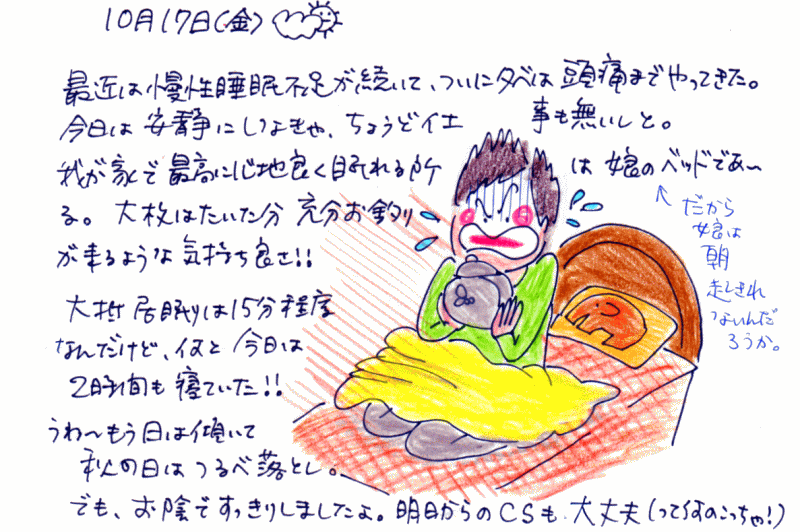 10月17日(金)
最近は慢性睡眠不足が続いて、ついに夕べは 頭痛までやってきた。
今日は 安静にしよきゃ、ちょうど仕事も無いしと。
我が家で最高に心地良く眠れる所は 娘のベッドであ〜
る。大枚はたいた分 充分お釣り
が来るような気持ち良さ!!
大抵 居眠りは15分程度
なんだけど、何と 今日は
2時間も寝ていた!!
うわ〜もう日は傾いて
秋の日は つるべ落とし。
でも、お陰ですっきりしましたよ。明日からのCSも、大丈夫(って何のこっちゃ!)
だから
娘は
朝
起きれ
ないんだ
ろうか。